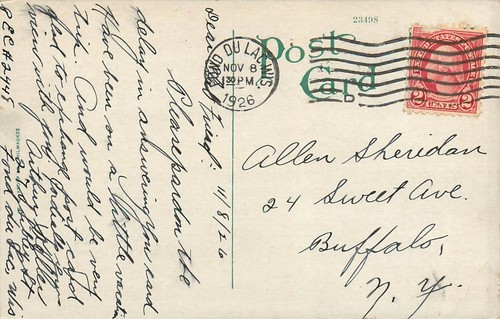 23498
Post
Card
FOND DU LAC, WIS.
NOV 8
12 30 PM
1926
UNITED STATES
2 CENTS 2
Allen Sheridan
24 Sweet Ave.
Buffalo,
N. Y.
11/8/26
Dear Card Friend:
Please pardon the
delay in answering your card
Have been on a little vacation
trip. And would be very
glad to exchange post cards
with you
Arthur
St
Fond du Lac, Wis
P E C H 2448